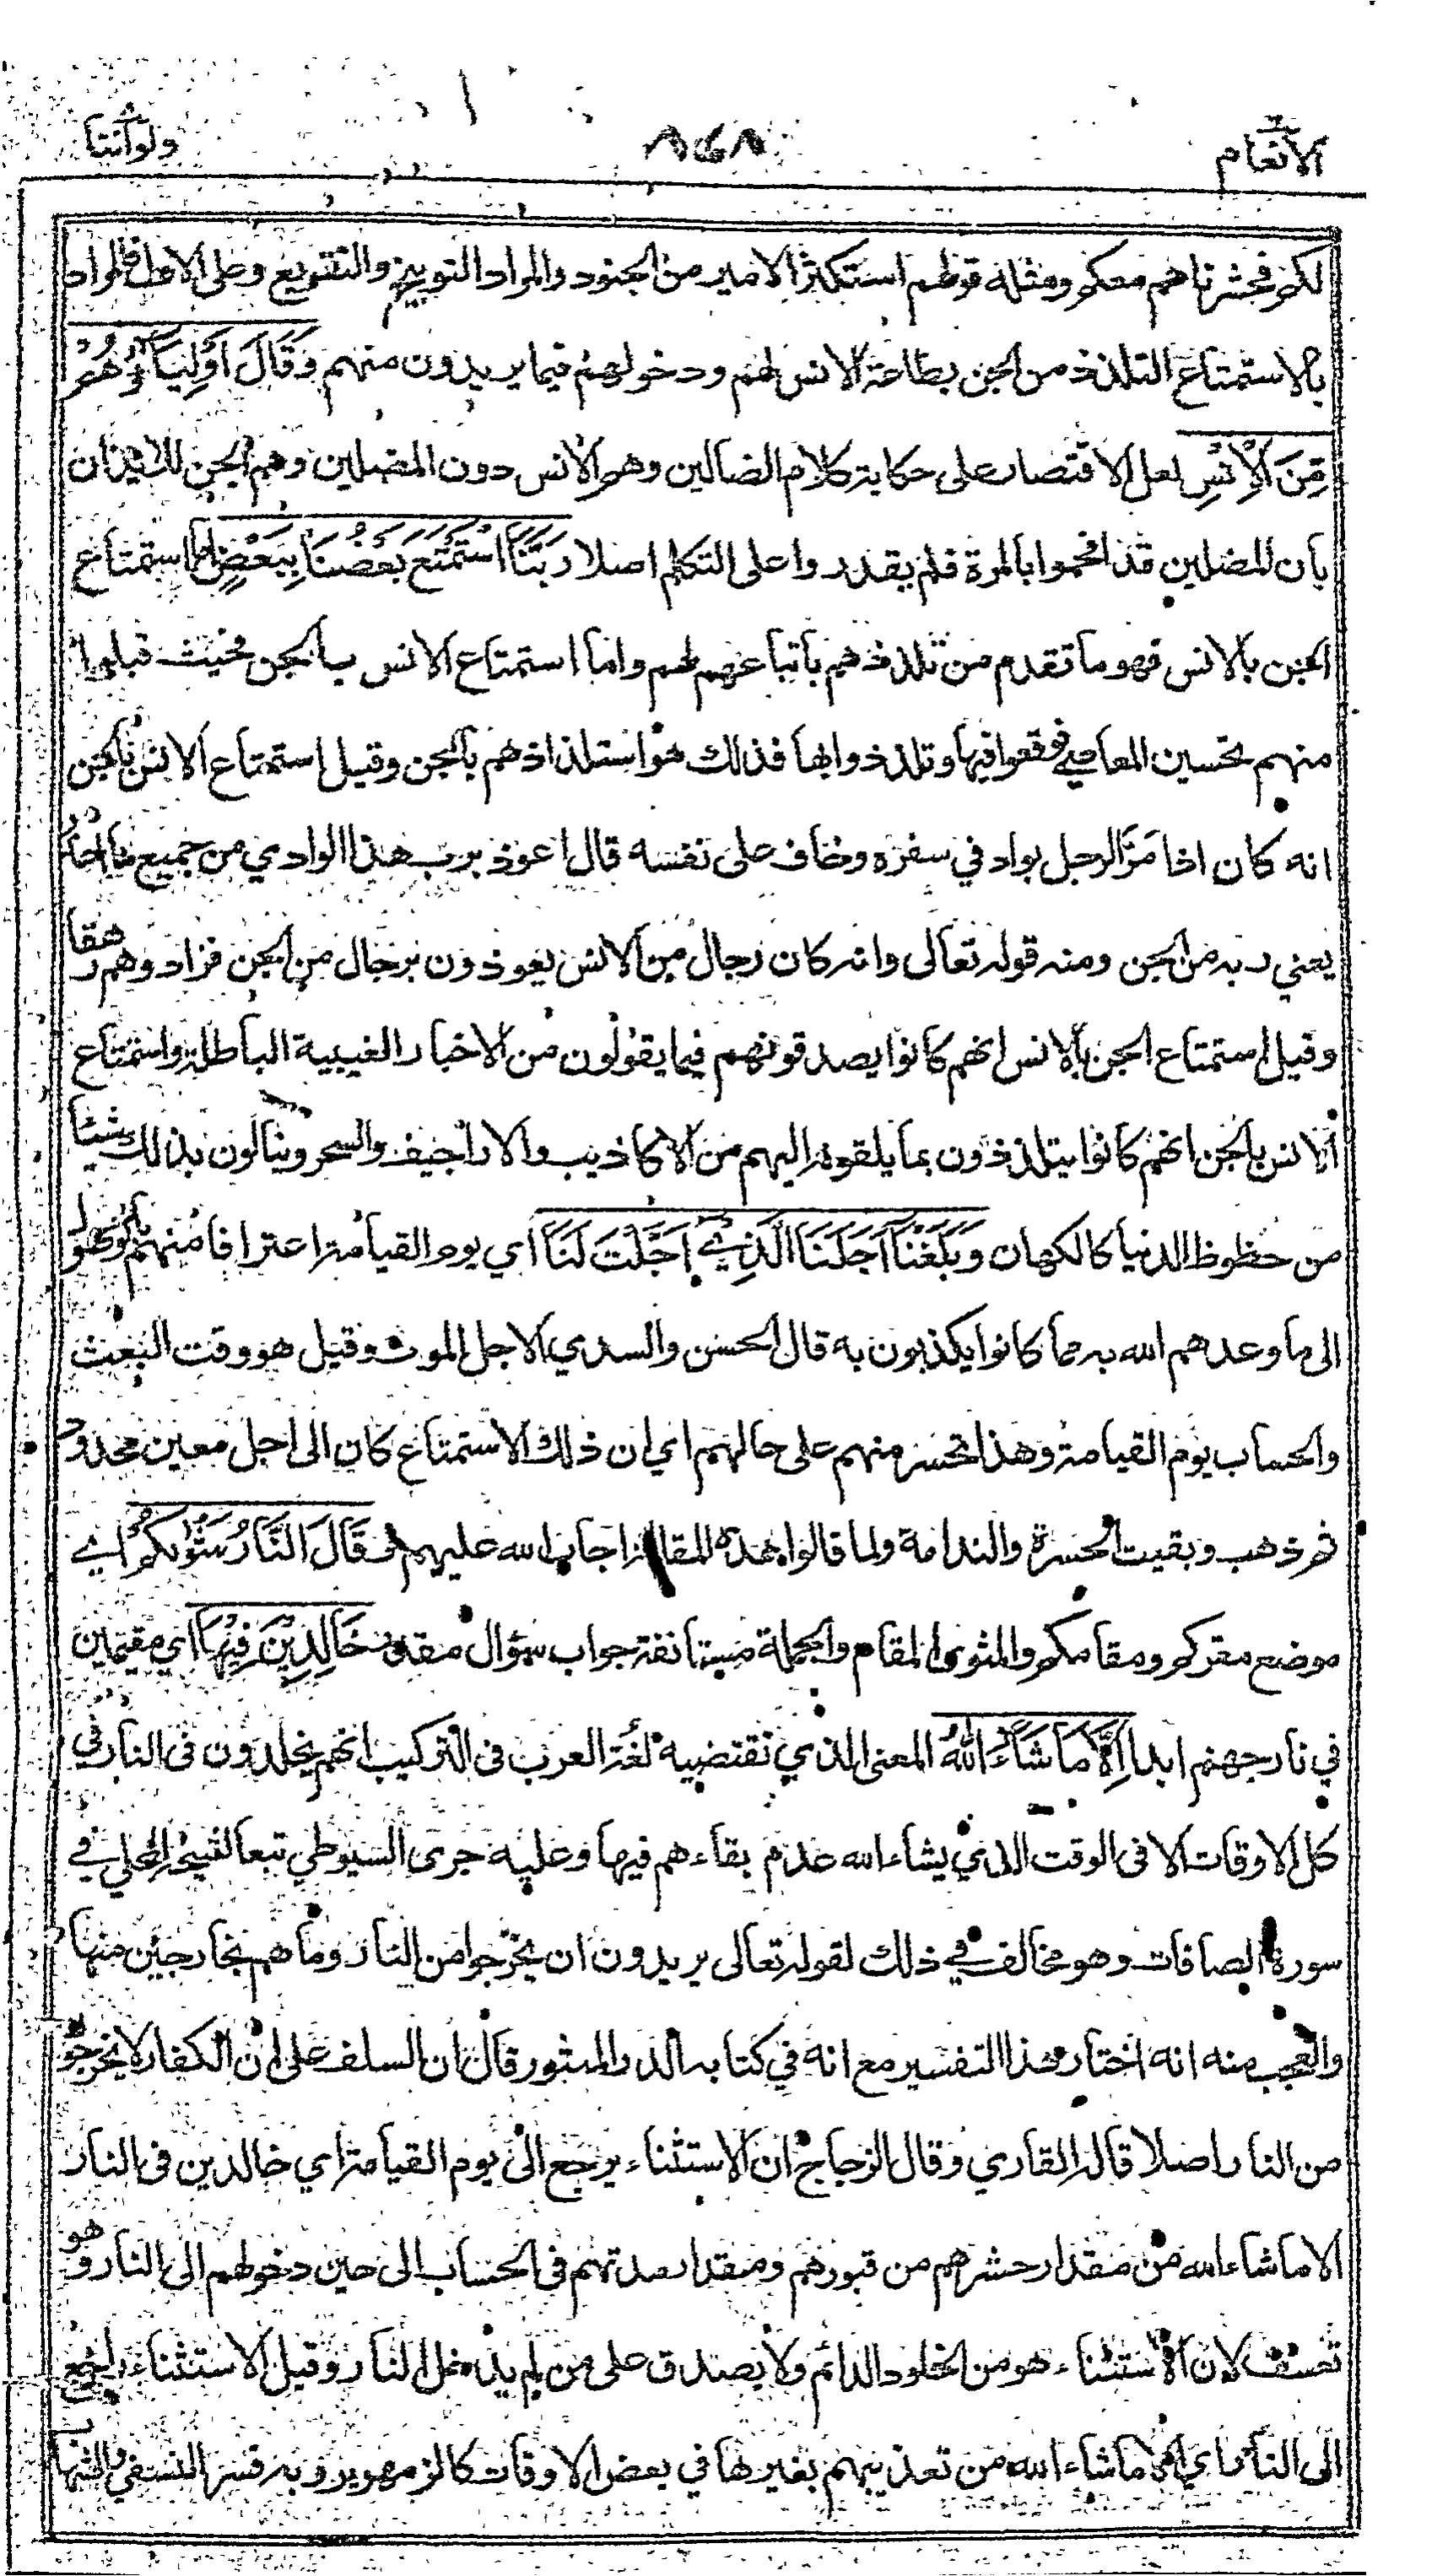 الانعام ولو اننا
لكم فحشرناهم معكم ومثله قولهم استكثر الامير من الجنود والمراد التوبيخ والتقريع وعلى الاول فالمراد
بالاستمتاع التلذذ من الجن بطاعة الانس لهم ودخولهم فيما يريدون منهم وَقَالَ اَوْلِيَاؤُهُمْ
مِّنَ الْاِنْسِ لعل الاقتصار على حكاية كلام الضالين وهم الانس دون المضلين وهم الجن للايذان
بان المضلين قد افحموا بالمرة فلم يقدروا على التكلم اصلا رَبَّنَا اسْتَمْتَعَ بَعْضُنَا بِبَعْضٍ اما استمتاع
الجن بالانس فهو ما تقدم من تلذذهم باتباعهم لهم واما استمتاع الانس بالجن فحيث قبلوا
منهم تحسين المعاصي فوقعوا فيها وتلذذوا بها فذلك هو استلذاذهم بالجن وقيل استمتاع الانس بالجن
انه كان اذا مَرَّ الرجل بواد في سفره وخاف على نفسه قال اعوذ برب هذا الوادي من جميع ما احذر
يعني ربه من الجن ومنه قوله تعالى وانه كان رجال من الانس يعوذون برجال من الجن فزادوهم رهقا
وقيل استمتاع الجن بالانس انهم كانوا يصدقونهم فيما يقولون من الاخبار الغيبية الباطلة واستمتاع
الانس بالجن انهم كانوا يتلذذون بما يلقونه اليهم من الاكاذيب والاراجيف والسحر وينالون بذلك شيئا
من حظوظ الدنيا كالكهان وَبَلَغْنَا اَجَلَنَا الَّذِيْ اَجَّلْتَ لَنَا اي يوم القيامة اعترافا منهم بالوصول
الى ما وعدهم الله به مما كانوا يكذبون به قال الحسن والسدي الاجل الموت وقيل هو وقت البعث
والحساب يوم القيامة وهذا تحسر منهم على حالهم اي ان ذلك الاستمتاع كان الى اجل معين محدود
ثم ذهب وبقيت الحسرة والندامة ولما قالوا بهذه المقالة اجاب الله عليهم و قَالَ النَّارُ مَثْوٰىكُمْ اي
موضع مقركم ومقامكم والمثوى المقام والجملة مستانفة جواب سؤال مقدر خَالِدِيْنَ فِيْهَا اي مقيمين
في نار جهنم ابدا اِلَّا مَا شَاءَ اللهُ المعنى الذي تقتضيه لغة العرب في التركيب انهم يخلدون في النار في
كل الاوقات الا في الوقت الذي يشاء الله عدم بقاءهم فيها وعليه جرى السيوطي تبعا لشيخه المحلي في
سورة الصافات وهو مخالف في ذلك لقوله تعالى يريدون ان يخرجوا من النار وما هم بخارجين منها
والعجب منه انه اختار هذا التفسير مع انه في كتابه الدر المنثور قال ان السلف على ان الكفار لا يخرجو
من النار اصلا قاله القاري وقال الزجاج ان الاستثناء يرجع الى يوم القيامة اي خالدين في النار
الا ما شاء الله من مقدار حشرهم من قبورهم ومقدار مدتهم في الحساب الى حين دخولهم الى النار وهو
تعسف لان الاستثناء هو من الخلود الدائم ولا يصدق على من لم يدخل النار وقيل الاستثناء راجع
الى النار اي الا ما شاء الله من تعذيبهم بغيرها في بعض الاوقات كالزمهرير وبه فسر النسفي والشها